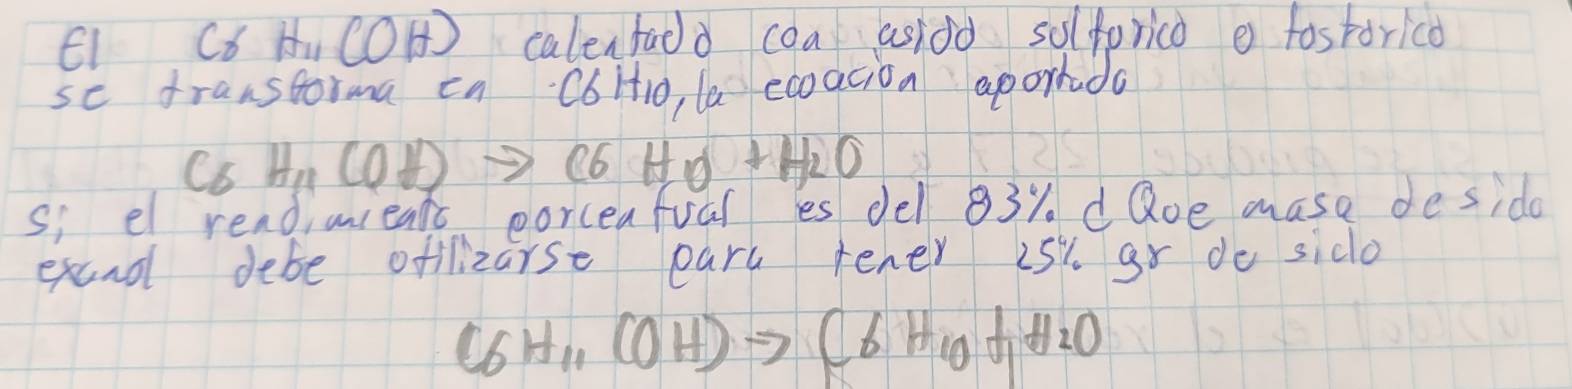 El C6 H11 (OH) calentado con asido solforico o fosforico
se transforma en C6H10, la ecoación aportada
C6 H11 (OH) → C6 H10 + H2O
Si el rendimiento porcentual es del 83% ¿ Qoe masa de sido
exanol debe otilizarse para tener 25% gr de siclo
C6H11 (OH) → C6 H10 + H2O